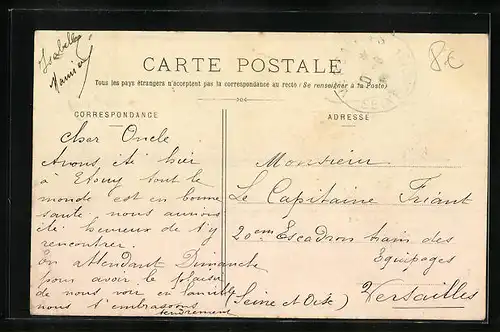 Isabelle
8€
CARTE POSTALE
Tous les pays étrangers n'acceptent pas la correspondance au recto (Se renseigner à la Poste)
CORRESPONDANCE
ADRESSE
Cher Oncle
Avons été hier
à tout le
monde est en bonne
santé nous aurions
été heureux de t'y
rencontrer.
En attendant Dimanche
pour avoir le plaisir
de nous voir en famille
nous t'embrassons
tendrement
Monsieur
Le Capitaine Friant
20em Escadron train des
Equipages
Versailles
(Seine et Oise)